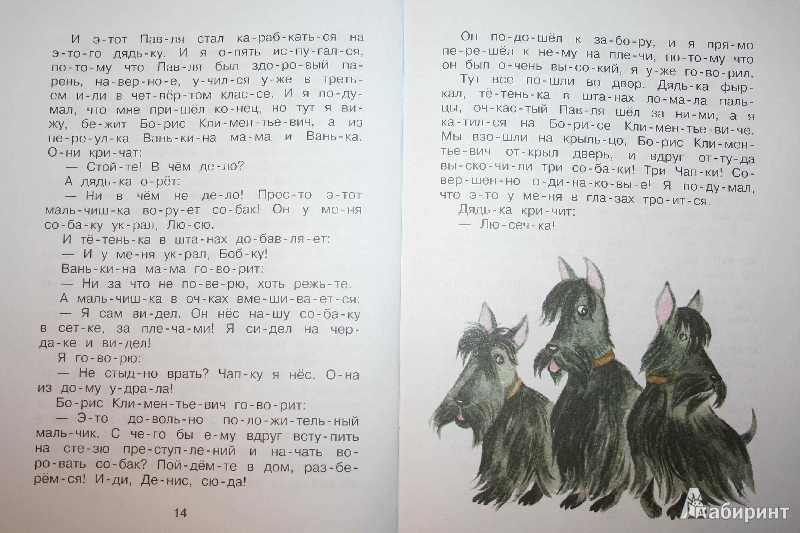 И э-тот Пав-ля стал ка-раб-кать-ся на
э-то-го дядь-ку. И я о-пять ис-пу-гал-ся,
по-то-му что Пав-ля был здо-ро-вый па-
рень, на-вер-но-е, у-чил-ся у-же в треть-
ем и-ли в чет-вёр-том клас-се. И я по-ду-
мал, что мне при-шёл ко-нец, но тут я ви-
жу, бе-жит Бо-рис Кли-мен-тье-вич, а из
пе-ре-ул-ка Вань-ки-на ма-ма и Вань-ка.
О-ни кри-чат:
— Стой-те! В чём де-ло?
А дядь-ка о-рёт:
— Ни в чём не де-ло! Прос-то э-тот
маль-чиш-ка во-ру-ет со-бак! Он у ме-ня
со-ба-ку ук-рал, Лю-сю.
И тё-тень-ка в шта-нах до-бав-ля-ет:
— И у ме-ня ук-рал, Боб-ку!
Вань-ки-на ма-ма го-во-рит:
— Ни за что не по-ве-рю, хоть режь-те.
А маль-чиш-ка в оч-ках вме-ши-ва-ет-ся:
— Я сам ви-дел. Он нёс на-шу со-ба-ку
в сет-ке, за пле-ча-ми! Я си-дел на чер-
да-ке и ви-дел!
Я го-во-рю:
— Не стыд-но врать? Чап-ку я нёс. О-на
из до-му у-дра-ла!
Бо-рис Кли-мен-тье-вич го-во-рит:
— Э-то до-воль-но по-ло-жи-тель-ный
маль-чик. С че-го бы е-му вдруг всту-пить
на сте-зю пре-ступ-ле-ний и на-чать во-
ро-вать со-бак? Пой-дём-те в дом, раз-бе-
рём-ся! И-ди, Де-нис, сю-да!
14
Он по-до-шёл к за-бо-ру, и я пря-мо
пе-ре-шёл к не-му на пле-чи, по-то-му что
он был о-чень вы-со-кий, я у-же го-во-рил.
Тут все по-шли во двор. Дядь-ка фыр-
кал, тё-тень-ка в шта-нах ло-ма-ла паль-
цы, оч-кас-тый Пав-ля шёл за ни-ми, а я
ка-тил-ся на Бо-ри-се Кли-мен-тье-ви-че.
Мы взо-шли на крыль-цо, Бо-рис Кли-мен-
тье-вич от-крыл дверь, и вдруг от-ту-да
вы-ско-чи-ли три со-ба-ки! Три Чап-ки! Со-
вер-шен-но о-ди-на-ко-вы-е! Я по-ду-мал,
что э-то у ме-ня в гла-зах тро-ит-ся.
Дядь-ка кри-чит:
— Лю-сеч-ка!
Лабиринт